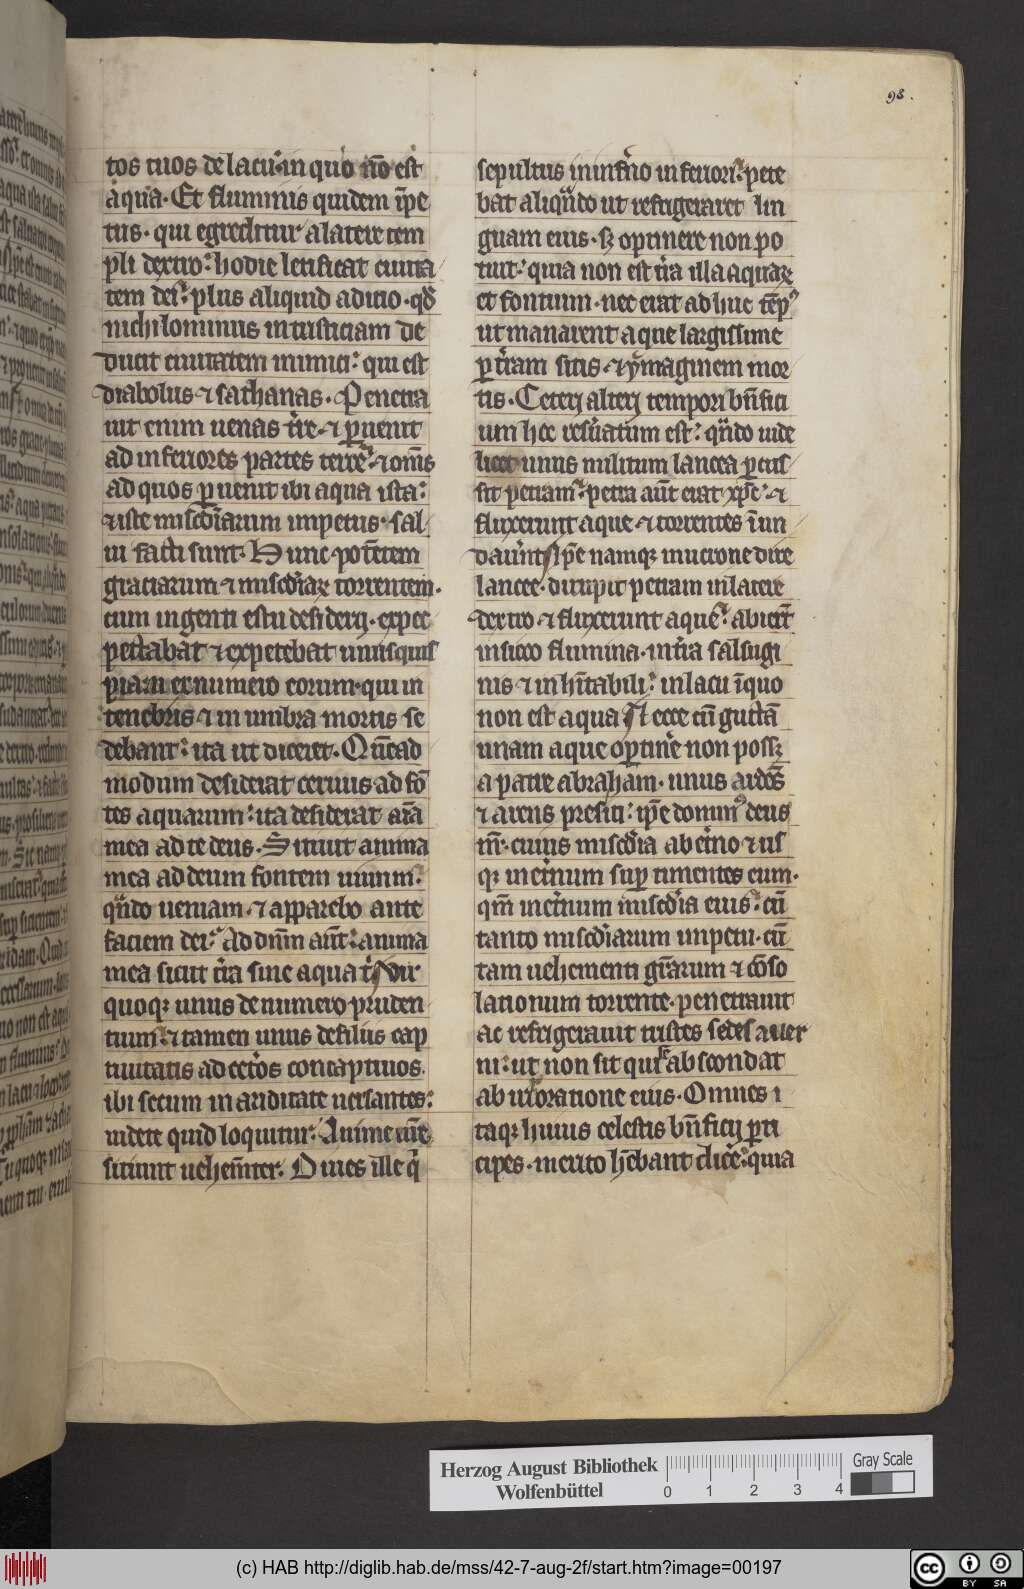 98.
tos tuos de lacu in quo nō est
aqua. Et fluminis quidem īpe
tus. qui egreditur a latere tem
pli dextro: hodie letificat ciuita
tem dei: plus aliquid adicio. qđ
nichilominus iniusticiam de
ducit ciuitatem inimici: qui est
diabolus ⁊ sathanas. Penetra
uit enim uenas tʳre. ⁊ ꝑuenit
ad inferiores partes terre: ⁊ om̄s
ad quos ꝑuenit ibi aqua ista:
⁊ iste misc̄diarum impetus. sal
ui facti sunt. Hunc potētem
graciarum ⁊ misc̄diaꝝ torrentem.
cum ingenti estu desiderij. expec
pectabat ⁊ expetebat unusquis
piam ex numero eorum. qui in
tenebris ⁊ in umbra mortis se
debant: ita ut diceret. Quēad
modum desiderat ceruus ad fō
tes aquarum: ita desiderat aīa
mea ad te deus. Sitiuit anima
mea ad deum fontem uiuum:
qn̄do ueniam. ⁊ apparebo ante
faciem dei: Ad dn̄m aūt: anima
mea sicut tʳra sine aqua tⁱ Vir
quoqꝫ unus de numero pruden
tum: ⁊ tamen unus de filiis cap
tiuitatis ad cet̄os concaptiuos.
ibi secum in ariditate uersantes:
uidete quid loquitur. Anime nr̄e
sitiunt uehem̄ter. Diues ille qⁱ
sepultus in inferno inferiori: pete
bat aliqn̄do ut refrigeraret lin
guam eius. sꝫ optinere non po
tuit: quia non est tʳra illa aquaꝝ
et fontium. nec erat adhuc tēpꝰ
ut manarent aque largissime
ꝑ tʳram sitis. ⁊ ymaginem mor
tis. Ceterj alterj tempori bn̄fici
um hoc res̄uatum est: qn̄do uide
licet unus militum lancea ꝑcus
sit petram: petra aūt erat xp̄c: ⁊
fluxerunt aque ⁊ torrentes īun
daueʳunt Ip̄e namqꝫ mucrone dire
lancee. dirupit petram in latere
dextro ⁊ fluxerunt aque: abierūt
in sicco flumina. in tʳra salsugi
nis ⁊ inhītabili: in lacu ī quo
non est aqua Et ecce cū guttā
unam aque optinʳe non possꝫ
a patre abraham. unus ardēs
⁊ arens presiti: ip̄e dominꝰ deus
nr̄. cuius misc̄dia ab etʳno ⁊ us
qꝫ in etʳnum suꝑ timentes eum.
qm̄ in etʳnum misc̄dia eius: cū
tanto misc̄diarum inpetu. cū
tam uehementi gr̄arum ⁊ cōso
lationum torrente. penetrauit
ac refrigerauit tristes sedes auer
ni: ut non sit qui se abscondat
ab irroratione eius. Omnes i
taqꝫ huius celestis bn̄ficij ꝑti
cipes. merito hēbant dicʳe: quia
Herzog August Bibliothek
Wolfenbüttel
0 1 2 3 4
Gray Scale
(c) HAB http://diglib.hab.de/mss/42-7-aug-2f/start.htm?image=00197
cc BY SA